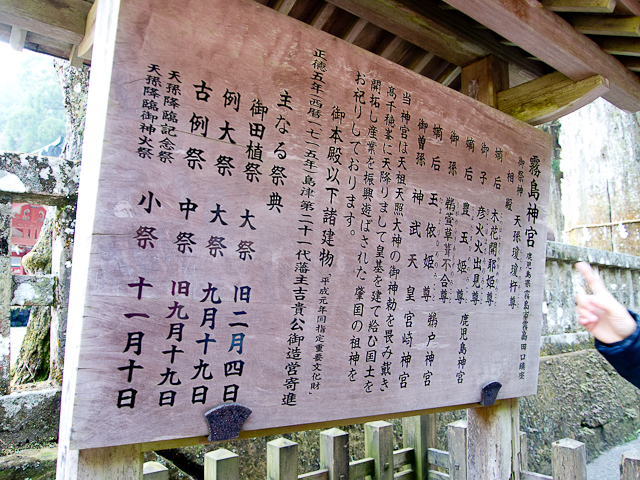 霧島神宮 鹿児島県霧島市霧島田口鎮座
御祭神 天孫瓊瓊杵尊
相殿
嫡后 木花開耶姫尊
御子 彦火火出見尊
嫡后 豊玉姫尊 鹿児島神宮
御孫 鸕鷀草葺不合尊 鵜戸神宮
嫡后 玉依姫尊
御曽孫 神武天皇 宮崎神宮
当神宮は天祖天照大神の御神勅を畏み戴き
高千穂峯に天降りまして皇基を建て給ひ国土を
開拓し産業を振興遊ばされた肇国の祖神を
お祀りしております。
御本殿以下諸建物「平成元年国指定重要文化財」
正徳五年西暦一七一五年島津第二十一代藩主吉貴公御造営寄進
主なる祭典
御田植祭 大祭 旧二月四日
例大祭 大祭 九月十九日
古例祭 中祭 旧九月十九日
天孫降臨記念祭
天孫降臨御神火祭 小祭 十一月十日